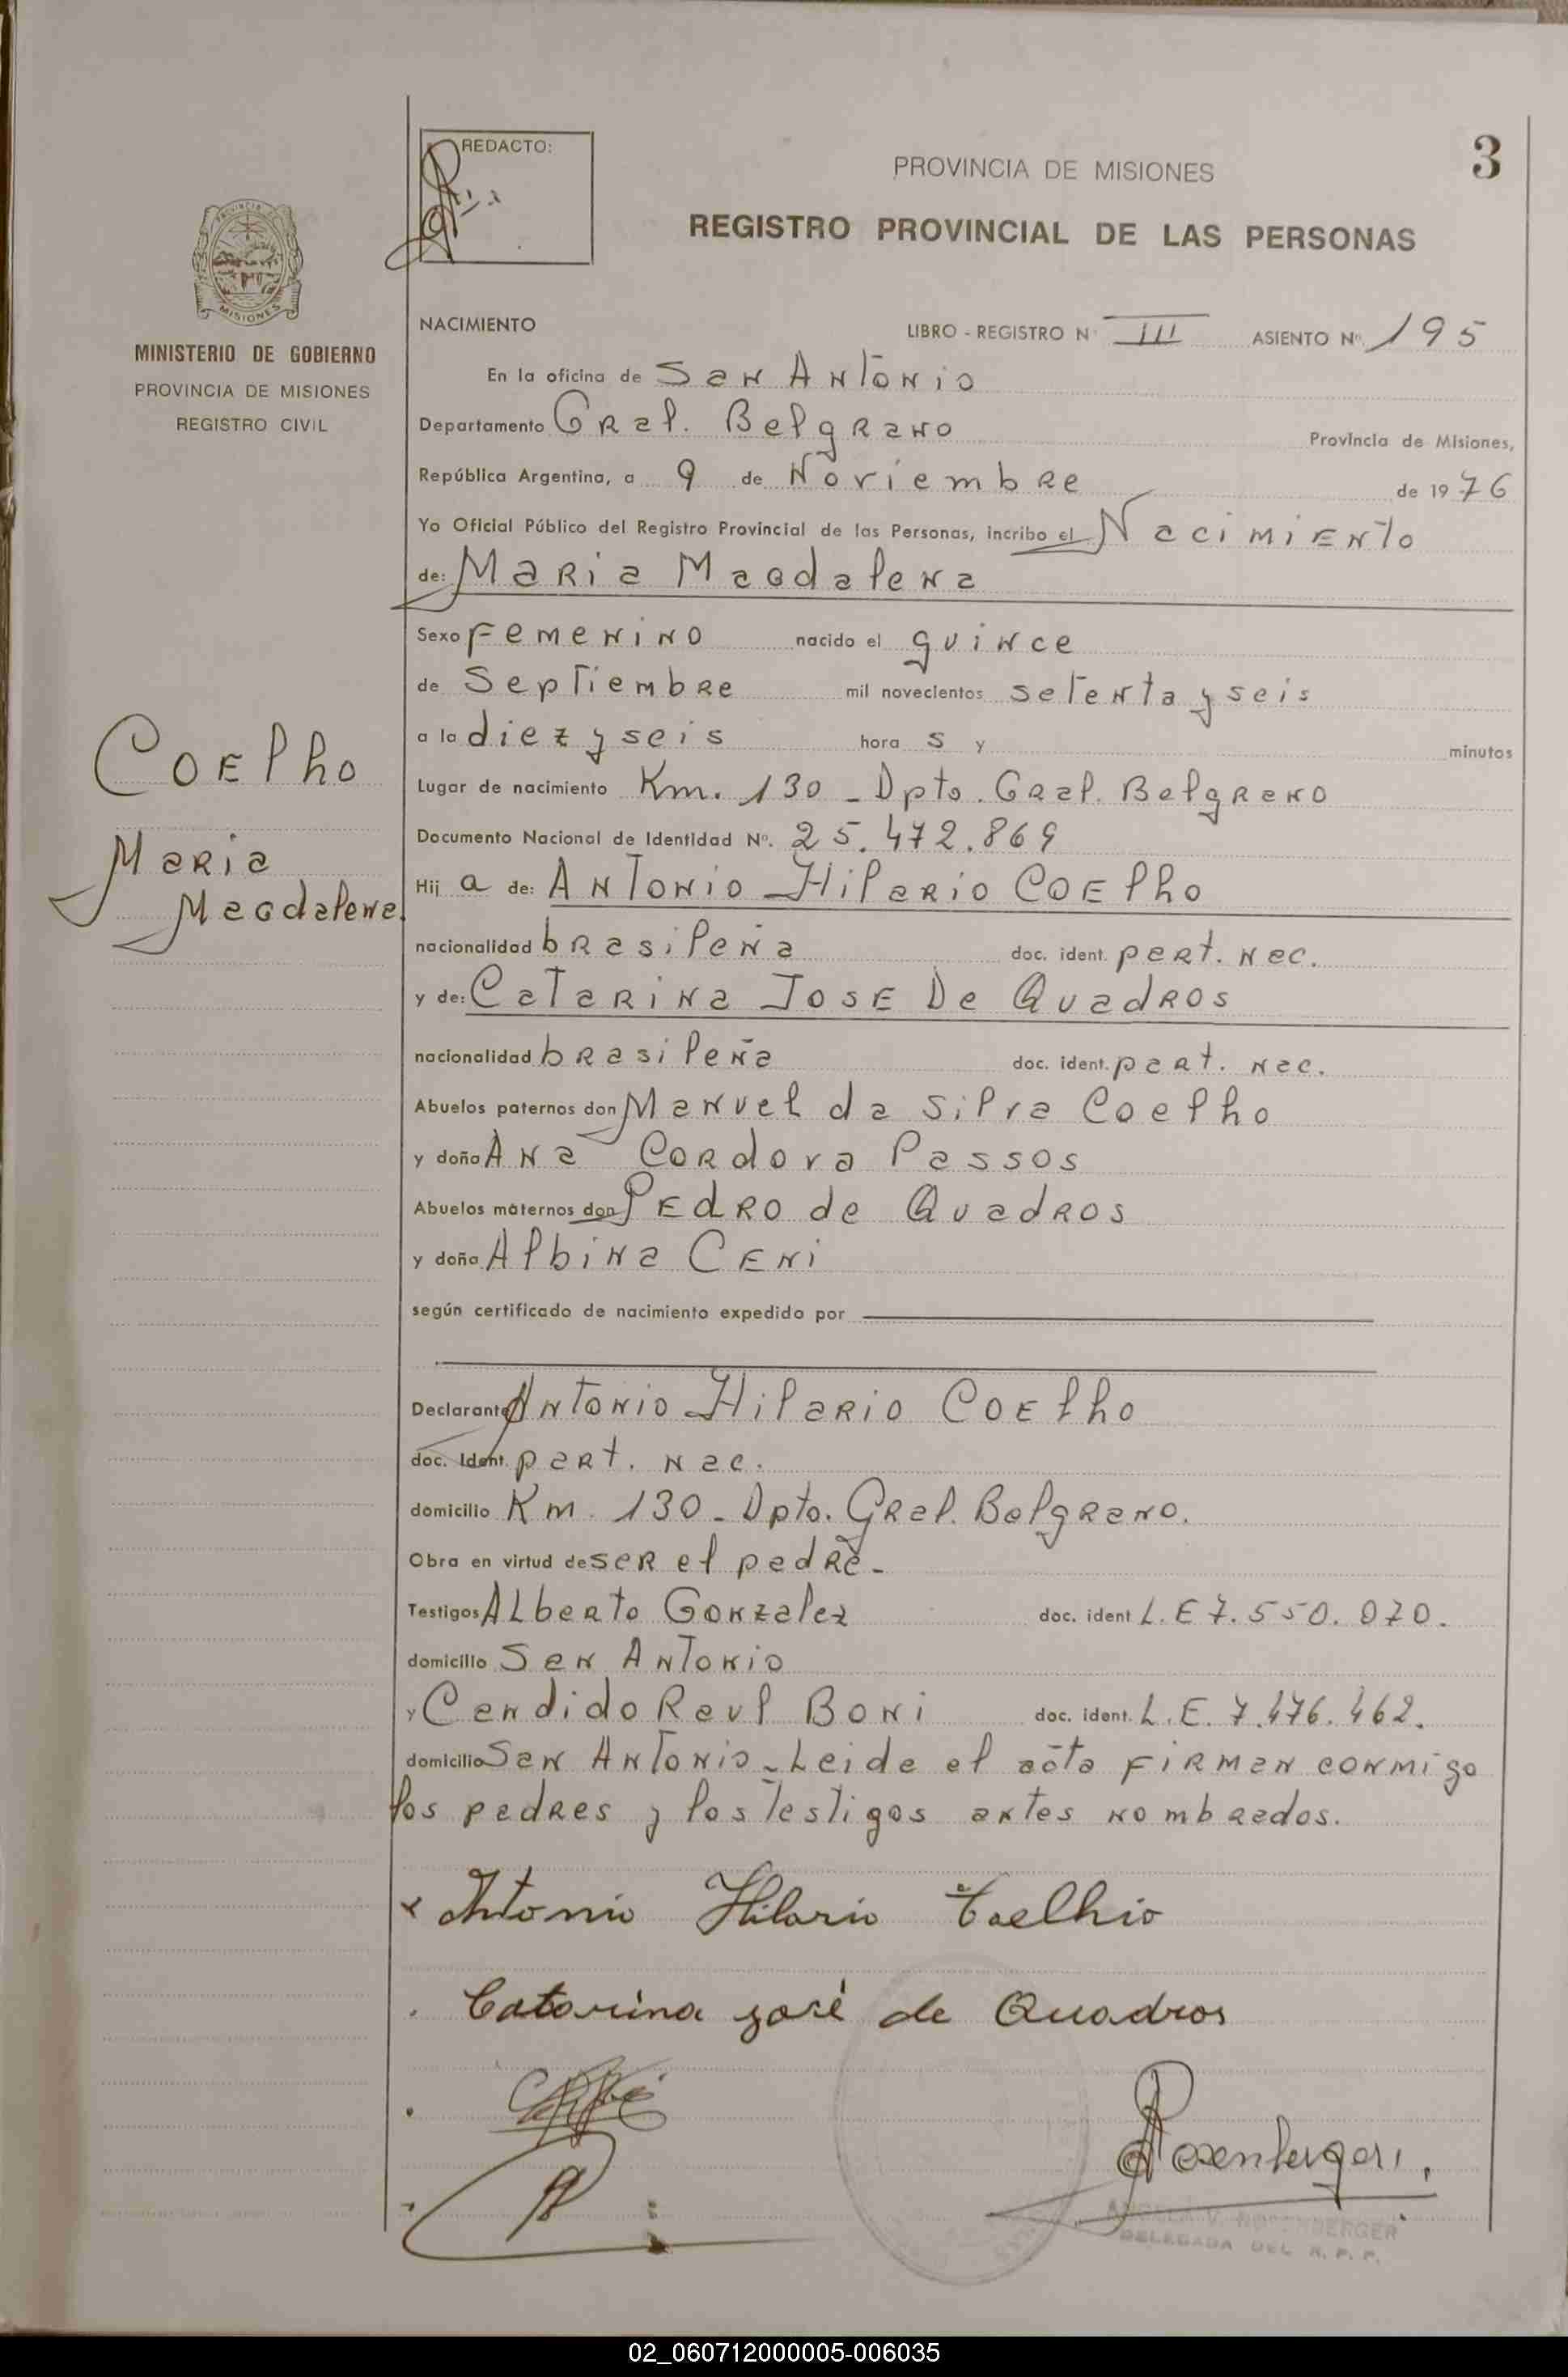 REDACTO:
3
PROVINCIA DE MISIONES
REGISTRO PROVINCIAL DE LAS PERSONAS
PROVINCIA DE
MISIONES
MINISTERIO DE GOBIERNO
PROVINCIA DE MISIONES
REGISTRO CIVIL
Coelho
Maria
Magdalena
NACIMIENTO LIBRO - REGISTRO Nº III ASIENTO Nº 195
En la oficina de San Antonio
Departamento Gral. Belgrano Provincia de Misiones,
República Argentina, a 9 de Noviembre de 1976
Yo Oficial Público del Registro Provincial de las Personas, incribo el Nacimiento
de: Maria Magdalena
Sexo Femenino nacido el quince
de Septiembre mil novecientos setenta y seis
a la diez y seis hora s y minutos
Lugar de nacimiento Km. 130 - Dpto. Gral. Belgrano
Documento Nacional de Identidad Nº. 25.472.869
Hij a de: Antonio Hilario Coelho
nacionalidad brasileña doc. ident. part. nac.
y de: Catarina Jose De Quadros
nacionalidad brasileña doc. ident. part. nac.
Abuelos paternos don Manuel da Silva Coelho
y doña Ana Cordova Passos
Abuelos maternos don Pedro de Quadros
y doña Albina Ceni
según certificado de nacimiento expedido por
Declarante Antonio Hilario Coelho
doc. Ident. part. nac.
domicilio Km. 130 - Dpto. Gral. Belgrano.
Obra en virtud de ser el padre -
Testigos Alberto Gonzalez doc. ident L.E 7.550.070.
domicilio San Antonio
y Candido Raul Boni doc. ident. L.E. 7.476.462.
domicilio San Antonio - Leida el acta firman conmigo
los padres y los testigos antes nombrados.
x Antonio Hilario Coelhio
Catarina josé de Quadros
Rosenberger
ANGELA V. ROSENBERGER
DELEGADA DEL R. P. P.
02_060712000005-006035